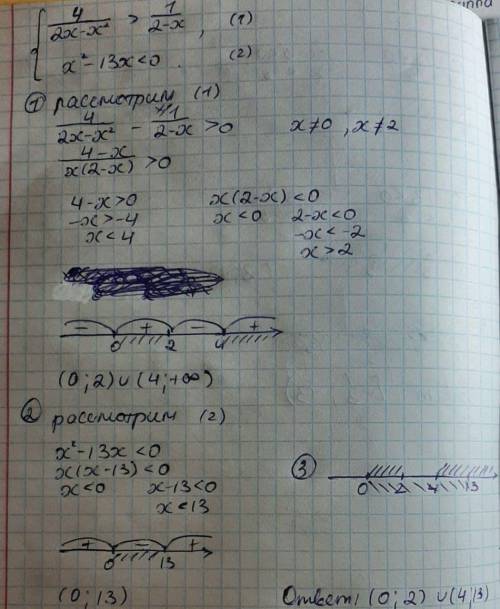 { 4/(2x-x²) > 1/(2-x) , (1)
x²-13x<0 . (2)
① рассмотрим (1)
4/(2x-x²) - 1/(2-x) >0 x≠0, x≠2
(4-x)/(x(2-x)) >0
4-x>0 x(2-x)<0
-x>-4 x<0 2-x<0
x<4 -x<-2
x>2
- + - +
0 2 4
(0;2)∪(4;+∞)
② рассмотрим (2)
x²-13x<0
x(x-13)<0
x<0 x-13<0
x<13
+ - +
0 13
(0;13)
③
0 2 4 13
Ответ: (0;2)∪(4;13)